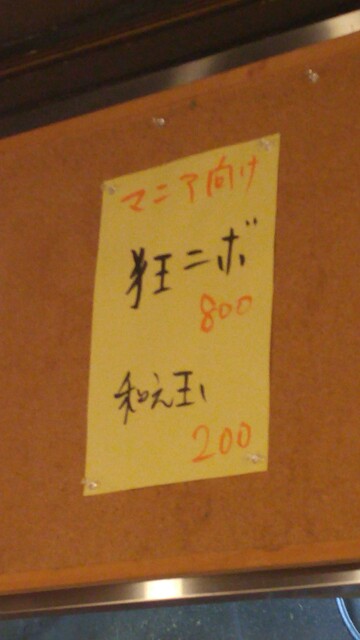 マニア向け
狂ニボ
800
和え玉
200